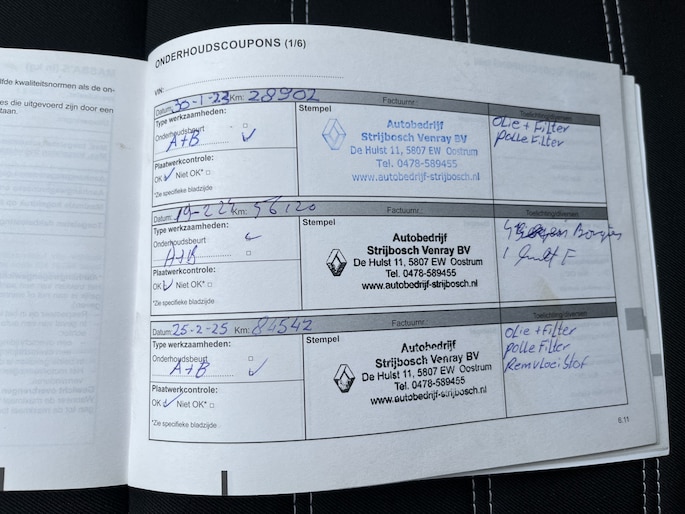 lfde kwaliteitsnormen als de on-
es die uitgevoerd zijn door een
taan.
ONDERHOUDSCOUPONS (1/6)
VIN:
Datum: 30-1-23 Km: 28902 Factuurnr.: Toelichting/diversen
Type werkzaamheden:
Onderhoudsbeurt
A+B
Plaatwerkcontrole:
OK Niet OK*
*Zie specifieke bladzijde
Stempel
Autobedrijf
Strijbosch Venray BV
De Hulst 11, 5807 EW Oostrum
Tel. 0478-589455
www.autobedrijf-strijbosch.nl
OLie + Filter
polle Filter
Datum: 19-2-24 Km: 56120 Factuurnr.: Toelichting/diversen
Type werkzaamheden:
Onderhoudsbeurt
A+B
Plaatwerkcontrole:
OK Niet OK*
*Zie specifieke bladzijde
Stempel
Autobedrijf
Strijbosch Venray BV
De Hulst 11, 5807 EW Oostrum
Tel. 0478-589455
www.autobedrijf-strijbosch.nl
Datum: 25-2-25 Km: 84542 Factuurnr.: Toelichting/diversen
Type werkzaamheden:
Onderhoudsbeurt
A+B
Plaatwerkcontrole:
OK Niet OK*
*Zie specifieke bladzijde
Stempel
Autobedrijf
Strijbosch Venray BV
De Hulst 11, 5807 EW Oostrum
Tel. 0478-589455
www.autobedrijf-strijbosch.nl
OLie + Filter
polle Filter
Remvloeistof
6.11